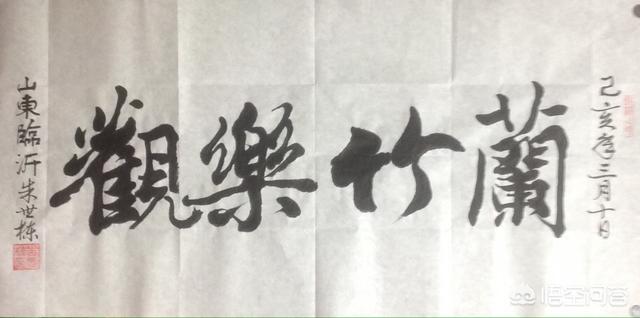 己亥年三月十日
蘭竹樂觀
山東臨沂朱世栋
悟空问答